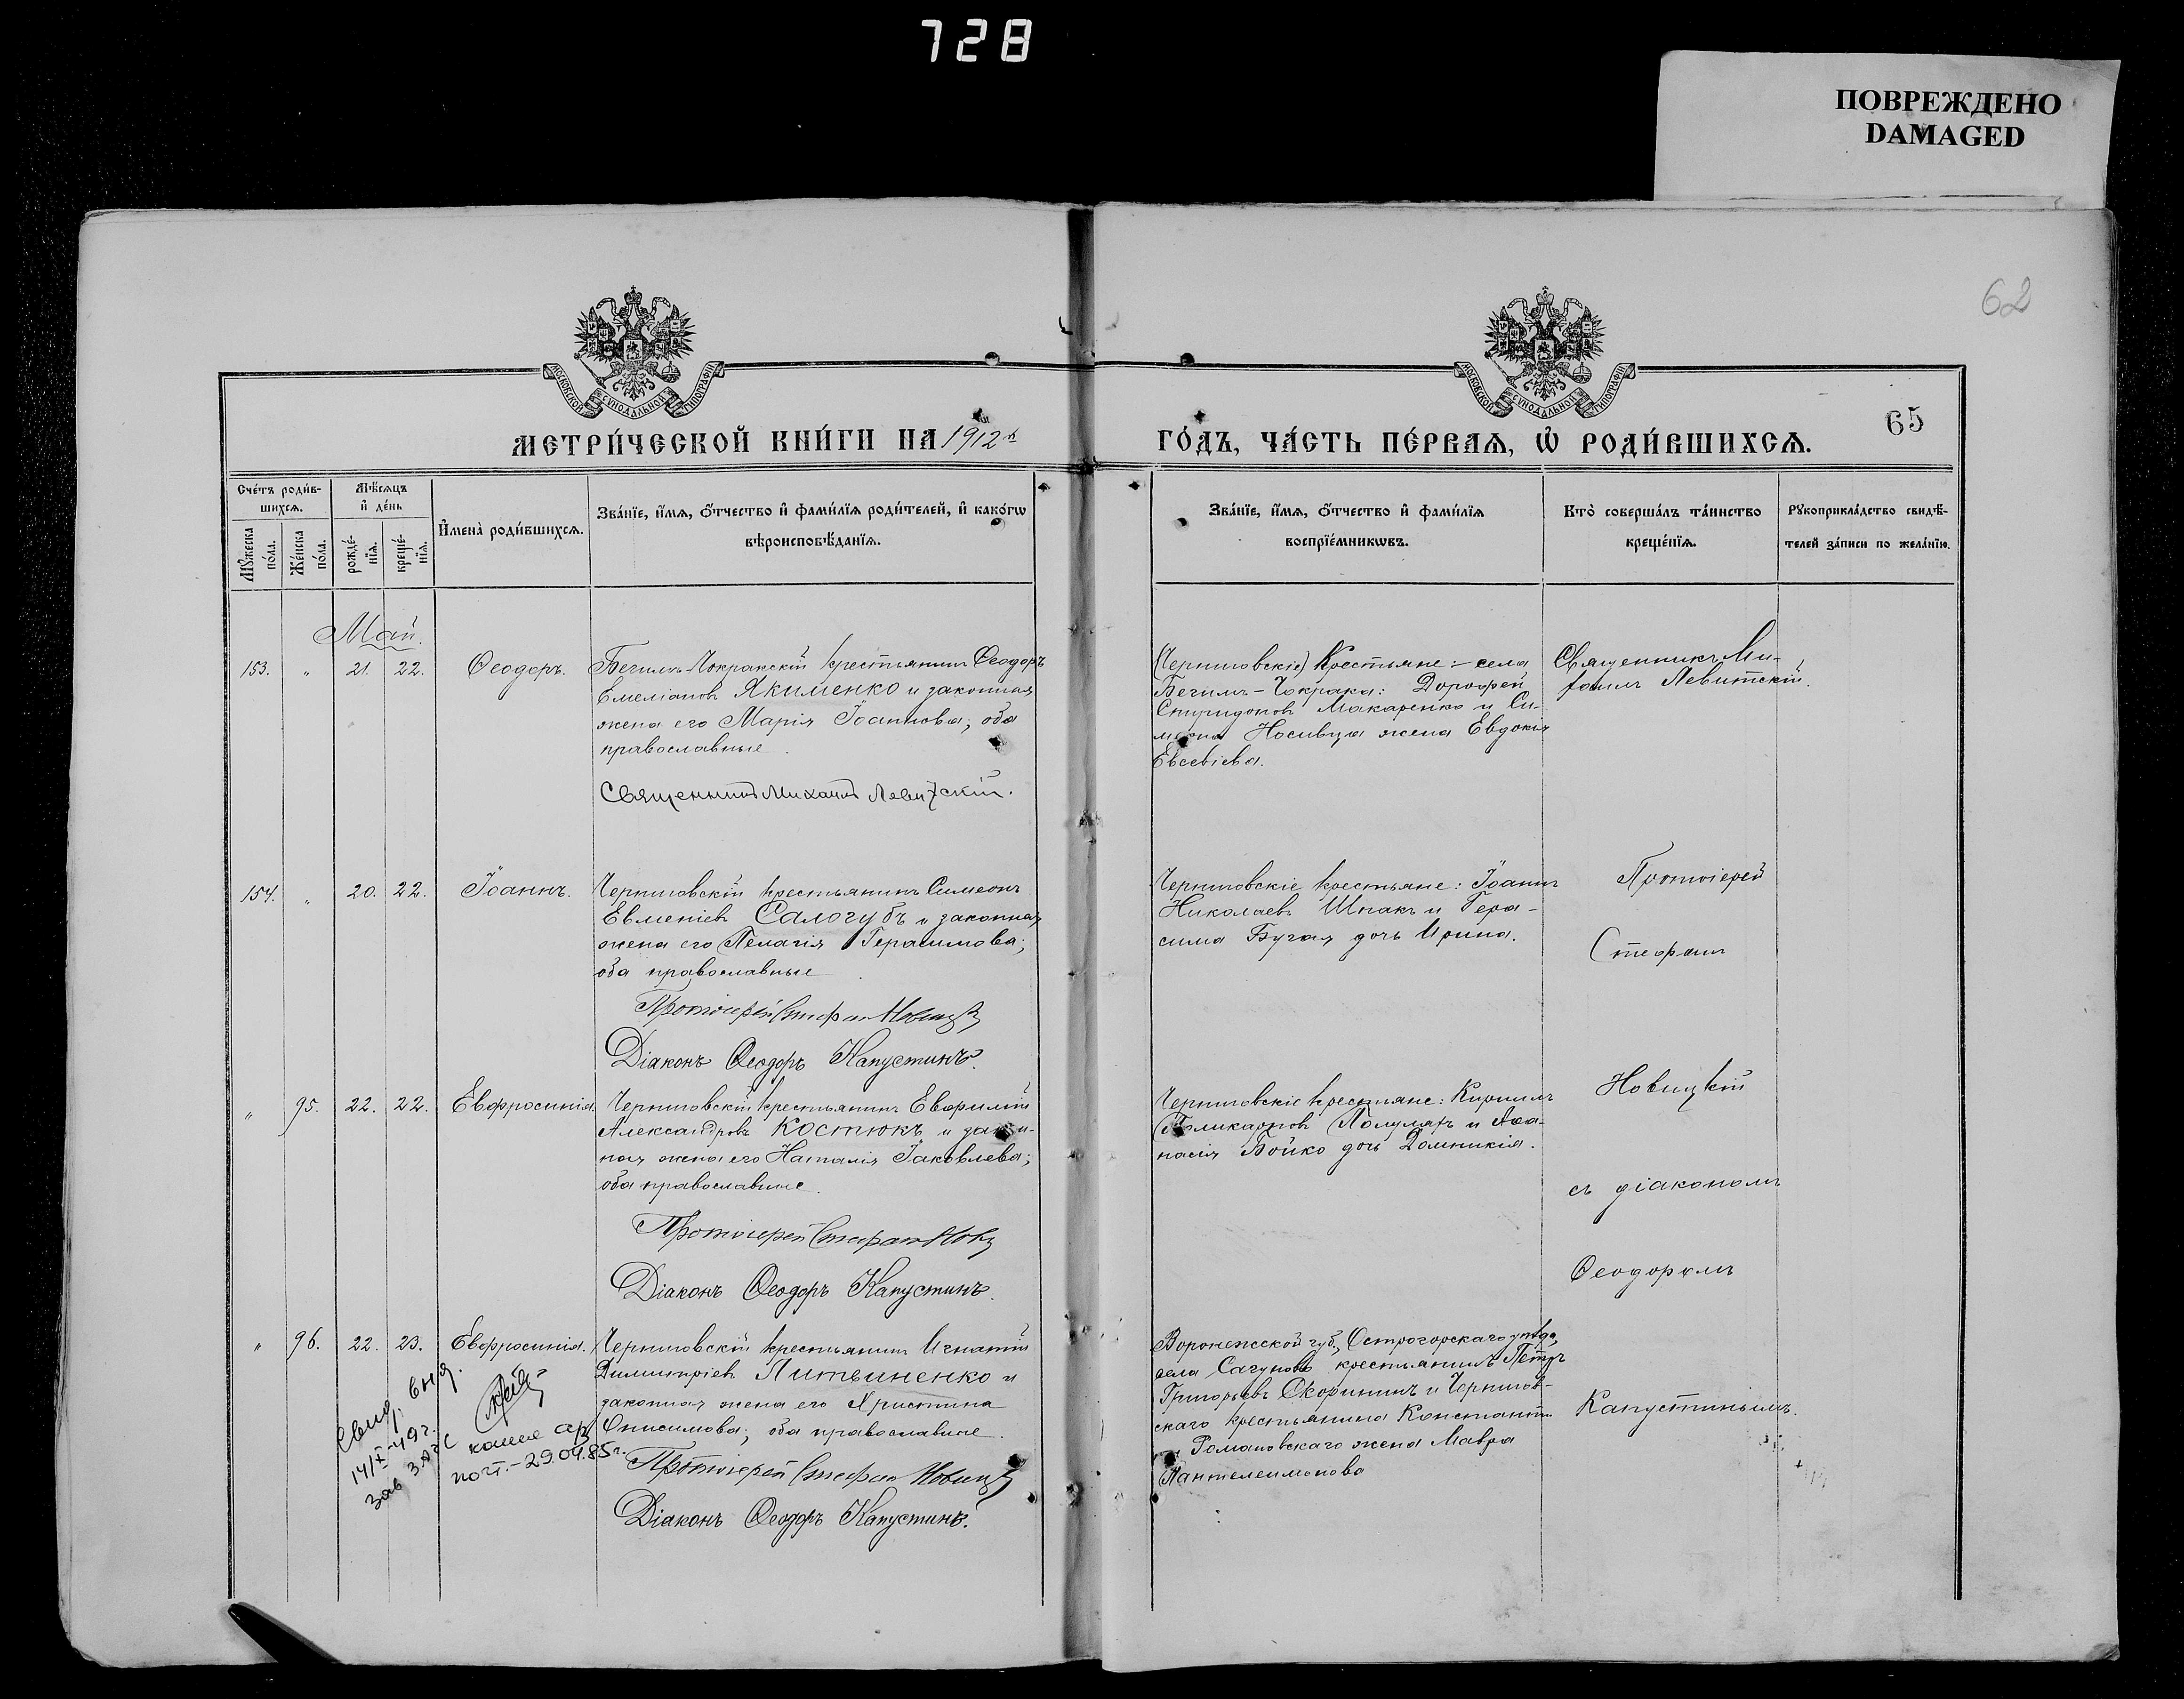 728
ПОВРЕЖДЕНО
DAMAGED
62
65
МОСКОВСКОЙ СѴНОДАЛЬНОЙ ТИПОГРАФІИ
МОСКОВСКОЙ СѴНОДАЛЬНОЙ ТИПОГРАФІИ
МЕТРИ́ЧЕСКОЙ КНИ́ГИ НА 1912й ГО́ДЪ, ЧА́СТЬ ПЕ́РВАѦ, Ѽ РОДИ́ВШИХСѦ.
Счётъ роди́в-
шихсѧ.
Мꙋ́жеска
по́ла.
Же́нска
по́ла.
Мѣ́сѧцъ
и҆ де́нь
рожде́-
нїѧ.
креще́-
нїѧ.
И҆мена̀ роди́вшихсѧ.
Зва́нїе, и҆́мѧ, о҆́тчество и҆ фами́лїѧ роди́телей, и҆ како́гѡ
вѣроисповѣ́данїѧ.
Зва́нїе, и҆́мѧ, о҆́тчество и҆ фами́лїѧ
воспрїе́мникѡвъ.
Кто̀ соверша́лъ та́инство
креще́нїѧ.
Рꙋкоприкла́дство свидѣ́-
телей за́писи по жела́нїю.
Май.
153. " 21. 22. Ѳеодоръ.
Бегимъ-Чокракскій крестьянинъ Ѳеодоръ
Емеліановъ Якименко и законная
жена его Марія Іоаннова; оба
православные.
Священникъ Михаилъ Левитскій.
(Черниговскіе) Крестьяне: - села
Бегимъ-Чокрака: Дорофей
Спиридоновъ Макаренко и Си-
меона Носивца жена Евдокія
Евсевіева.
Священникъ Ми-
хаилъ Левитскій.
154. " 20. 22. Іоаннъ.
Черниговскій крестьянинъ Симеонъ
Евменіевъ Салогубъ и законная
жена его Пелагія Герасимова;
оба православные.
Протоіерей Стефанъ Новицкій
Діаконъ Ѳеодоръ Капустинъ.
Черниговскіе крестьяне: Іоаннъ
Николаевъ Шпакъ и Гера-
сима Бугая дочь Ирина.
Протоіерей
Стефанъ
" 95. 22. 22. Евфросинія.
Черниговскій крестьянинъ Евфимій
Александровъ Костюкъ и закон-
ная жена его Наталія Іаковлева;
оба православные.
Протоіерей Стефанъ Новиц
Діаконъ Ѳеодоръ Капустинъ.
Черниговскіе крестьяне: Кириллъ
Поликарповъ Поломарь и Аѳа-
насія Бойко дочь Домникія.
Новицкій
съ діакономъ
Ѳеодоромъ
" 96. 22. 23. Евфросинія.
Черниговскій крестьянинъ Игнатій
Димитріевъ Литвиненко и
законная жена его Христина
Онисимова; оба православные.
Протоіерей Стефанъ Новицкій
Діаконъ Ѳеодоръ Капустинъ.
Воронежской губ., Острогорскаго уѣзда,
села Сагуновъ крестьянинъ Петръ
Григорьевъ Скорининъ и Чернигов-
скаго крестьянина Константи-
на Романовскаго жена Мавра
Пантелеимонова
Капустинымъ.
Свид. выд.
14/X-49 г.
зав ЗАГС
копие
пост.-29.04.85г.